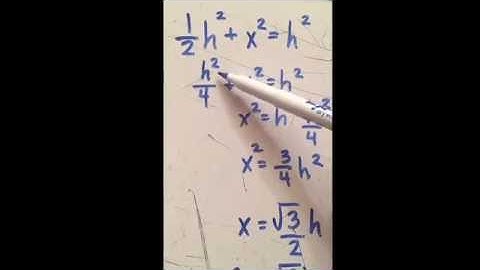 1/2 h² + x² = h²
h²/4 + x² = h²
x² = h
x² = 3/4 h²
x = √3/2 h